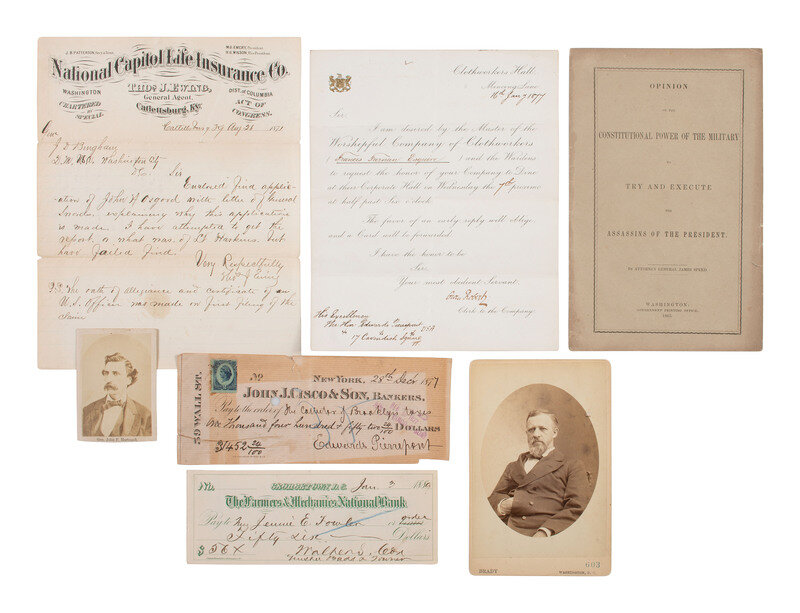 J. B. PATTERSON, Sec'y & Treas.
National Capitol Life Insurance Co.
WASHINGTON
DIST. OF COLUMBIA
THOS. J. EWING,
General Agent,
Catlettsburg, Ky.
CHARTERED BY SPECIAL
ACT OF CONGRESS.
Catlettsburg, Ky Aug 21 1871
Gen
J. D Bingham
Washington City
Sir
Enclosed find applic-
ation of John H Osgood with letter of
explaining why this application
is made. I have attempted to get the
report, or what was of Lt Harkins. but
have failed
Very Respectfully
Thos J Ewing
P.S. The oath of allegiance and certificate of an
U.S. Officer was made on first filing of the
same
Clothworkers Hall,
Mincing Lane
16th Jany 1877
Sir,
I am desired by the Master of the
Worshipful Company of Clothworkers
( Esquire ) and the Wardens
to request the honor of your Company to Dine
at their Corporate Hall on Wednesday the 7th proximo
at half past Six o'clock.
The favor of an early reply will oblige
and a Card will be forwarded.
I have the honor to be
Sir,
Your most obedient Servant,
Owen Roberts
Clerk to the Company.
His Excellency
The Hon Edwards Pierrepont
17 Cavendish Square
W.
OPINION
ON THE
CONSTITUTIONAL POWER OF THE MILITARY
TO
TRY AND EXECUTE
THE
ASSASSINS OF THE PRESIDENT.
BY ATTORNEY GENERAL JAMES SPEED.
WASHINGTON:
GOVERNMENT PRINTING OFFICE.
1865.
Gen. John F. Hartranft
59 WALL ST.
No
NEW YORK, 28th Dec 1877
JOHN J. CISCO & SON, BANKERS.
Pay to the order of The Collector of Brooklyn taxes
One Thousand four hundred & fifty two 20/100 DOLLARS
$1452 20/100
Edwards Pierrepont
No.
GEORGETOWN, D.C. Jan. 2 1880
The Farmers & Mechanics National Bank
Pay to Jennie E Fowler or order
Fifty Six Dollars
$56 X
BRADY
WASHINGTON, D. C.
603